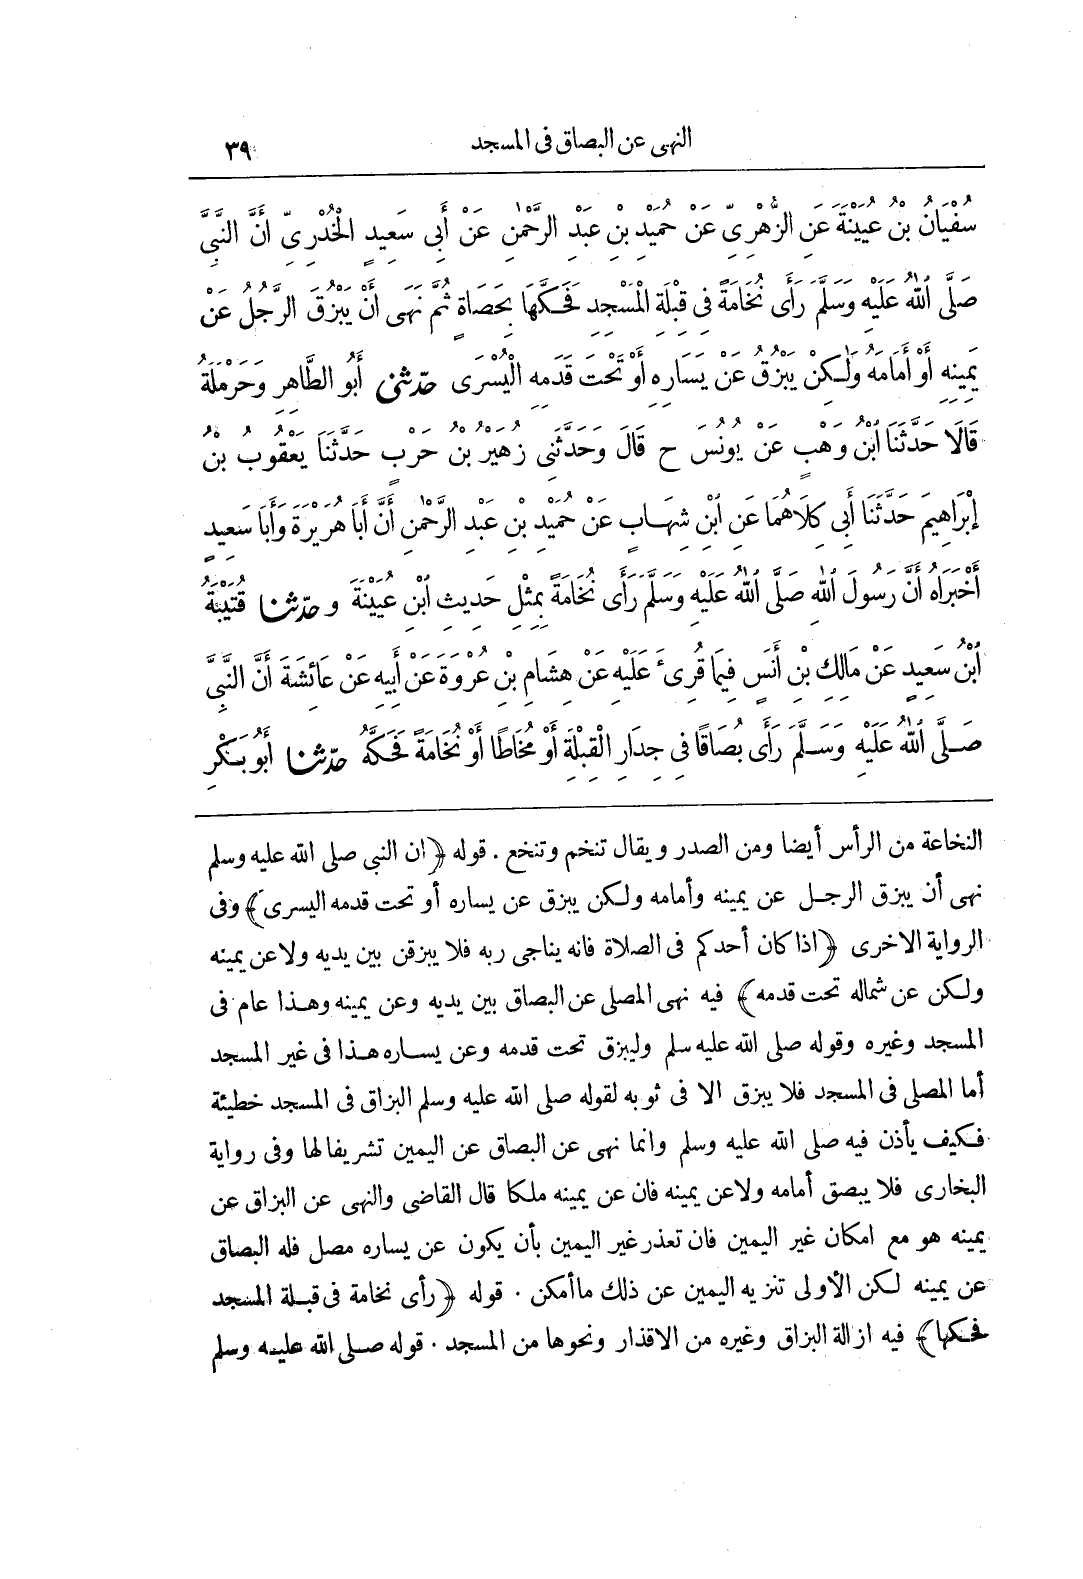 النهى عن البصاق فى المسجد ٣٩
سُفْيَانُ بْنُ عُيَيْنَةَ عَنِ الزُّهْرِىِّ عَنْ حُمَيْدِ بْنِ عَبْدِ الرَّحْمٰنِ عَنْ أَبِى سَعِيدٍ الْخُدْرِىِّ أَنَّ النَّبِىَّ
صَلَّى اللهُ عَلَيْهِ وَسَلَّمَ رَأَى نُخَامَةً فِى قِبْلَةِ الْمَسْجِدِ فَحَكَّهَا بِحَصَاةٍ ثُمَّ نَهَى أَنْ يَبْزُقَ الرَّجُلُ عَنْ
يَمِينِهِ أَوْ أَمَامَهُ وَلٰكِنْ يَبْزُقُ عَنْ يَسَارِهِ أَوْ تَحْتَ قَدَمِهِ الْيُسْرَى حدّثنى أَبُو الطَّاهِرِ وَحَرْمَلَةُ
قَالَا حَدَّثَنَا ابْنُ وَهْبٍ عَنْ يُونُسَ ح قَالَ وَحَدَّثَنِى زُهَيْرُ بْنُ حَرْبٍ حَدَّثَنَا يَعْقُوبُ بْنُ
إِبْرَاهِيمَ حَدَّثَنَا أَبِى كِلَاهُمَا عَنِ ابْنِ شِهَابٍ عَنْ حُمَيْدِ بْنِ عَبْدِ الرَّحْمٰنِ أَنَّ أَبَا هُرَيْرَةَ وَأَبَا سَعِيدٍ
أَخْبَرَاهُ أَنَّ رَسُولَ اللهِ صَلَّى اللهُ عَلَيْهِ وَسَلَّمَ رَأَى نُخَامَةً بِمِثْلِ حَدِيثِ ابْنِ عُيَيْنَةَ و حدّثنا قُتَيْبَةُ
ابْنُ سَعِيدٍ عَنْ مَالِكِ بْنِ أَنَسٍ فِيمَا قُرِىءَ عَلَيْهِ عَنْ هِشَامِ بْنِ عُرْوَةَ عَنْ أَبِيهِ عَنْ عَائِشَةَ أَنَّ النَّبِىَّ
صَلَّى اللهُ عَلَيْهِ وَسَلَّمَ رَأَى بُصَاقًا فِى جِدَارِ الْقِبْلَةِ أَوْ مُخَاطًا أَوْ نُخَامَةً فَحَكَّهُ حدّثنا أَبُو بَكْرِ
النخاعة من الرأس أيضا ومن الصدر ويقال تنخم وتنخع . قوله ﴿ان النبى صلى الله عليه وسلم
نهى أن يبزق الرجل عن يمينه وأمامه ولكن يبزق عن يساره أو تحت قدمه اليسرى﴾ وفى
الرواية الاخرى ﴿اذا كان أحدكم فى الصلاة فانه يناجى ربه فلا يبزقن بين يديه ولا عن يمينه
ولكن عن شماله تحت قدمه﴾ فيه نهى المصلى عن البصاق بين يديه وعن يمينه وهذا عام فى
المسجد وغيره وقوله صلى الله عليه سلم وليبزق تحت قدمه وعن يساره هذا فى غير المسجد
أما المصلى فى المسجد فلا يبزق الا فى ثوبه لقوله صلى الله عليه وسلم البزاق فى المسجد خطيئة
فكيف يأذن فيه صلى الله عليه وسلم وانما نهى عن البصاق عن اليمين تشريفا لها وفى رواية
البخارى فلا يبصق أمامه ولا عن يمينه فان عن يمينه ملكا قال القاضى والنهى عن البزاق عن
يمينه هو مع امكان غير اليمين فان تعذر غير اليمين بأن يكون عن يساره مصل فله البصاق
عن يمينه لكن الأولى تنزيه اليمين عن ذلك ما أمكن . قوله ﴿رأى نخامة فى قبلة المسجد
فحكها﴾ فيه ازالة البزاق وغيره من الاقذار ونحوها من المسجد . قوله صلى الله عليه وسلم